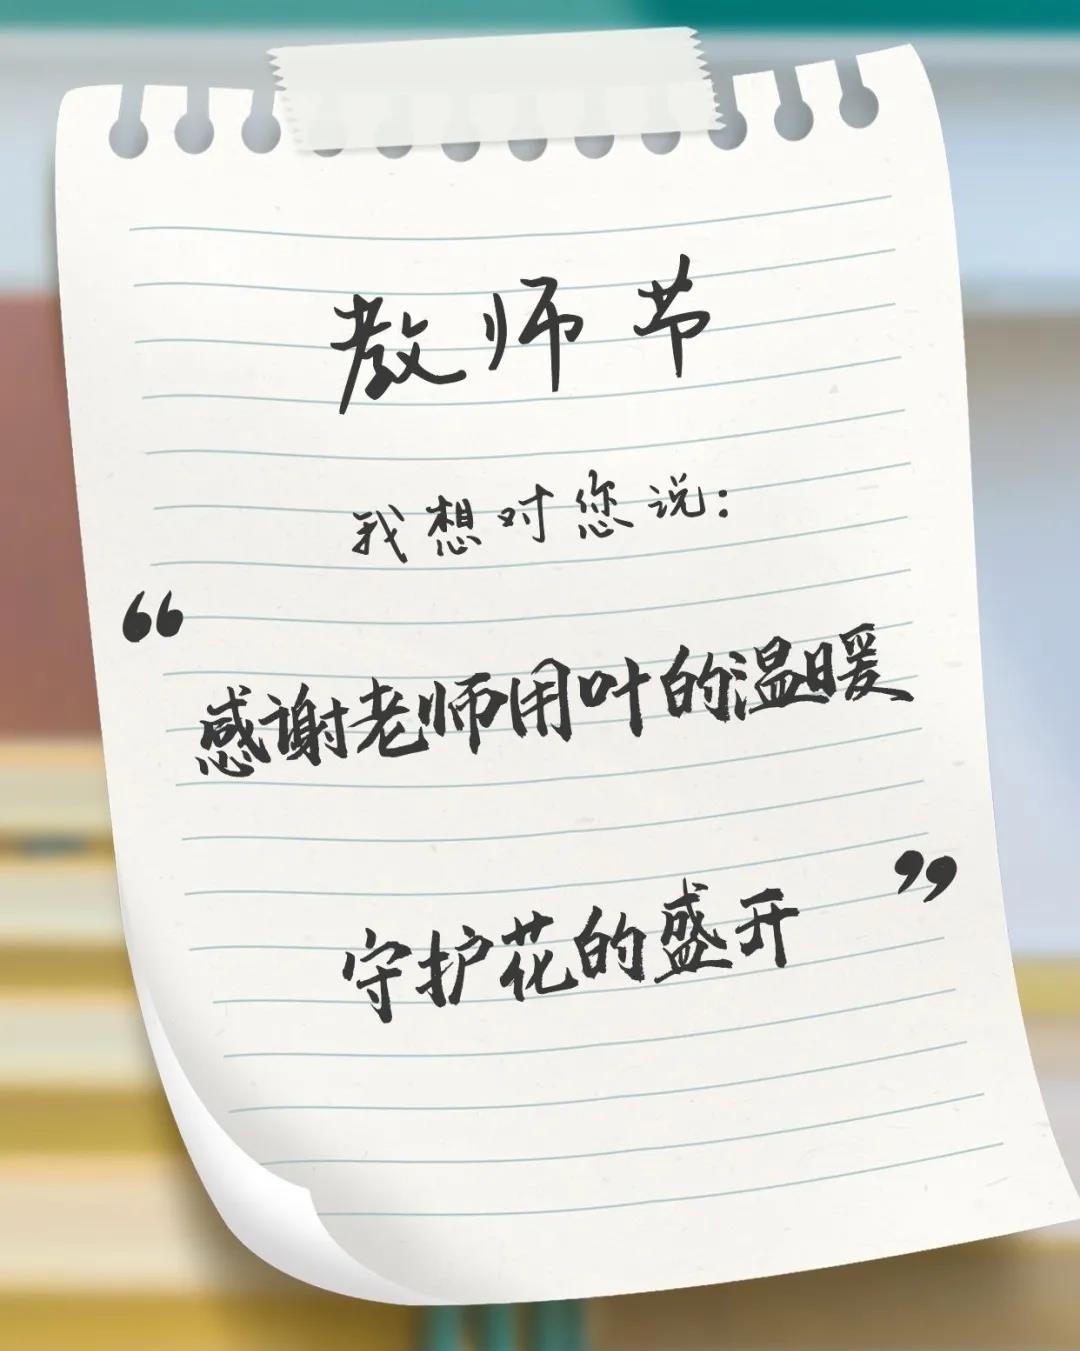 教师节
我想对您说：
“感谢老师用叶的温暖
守护花的盛开”